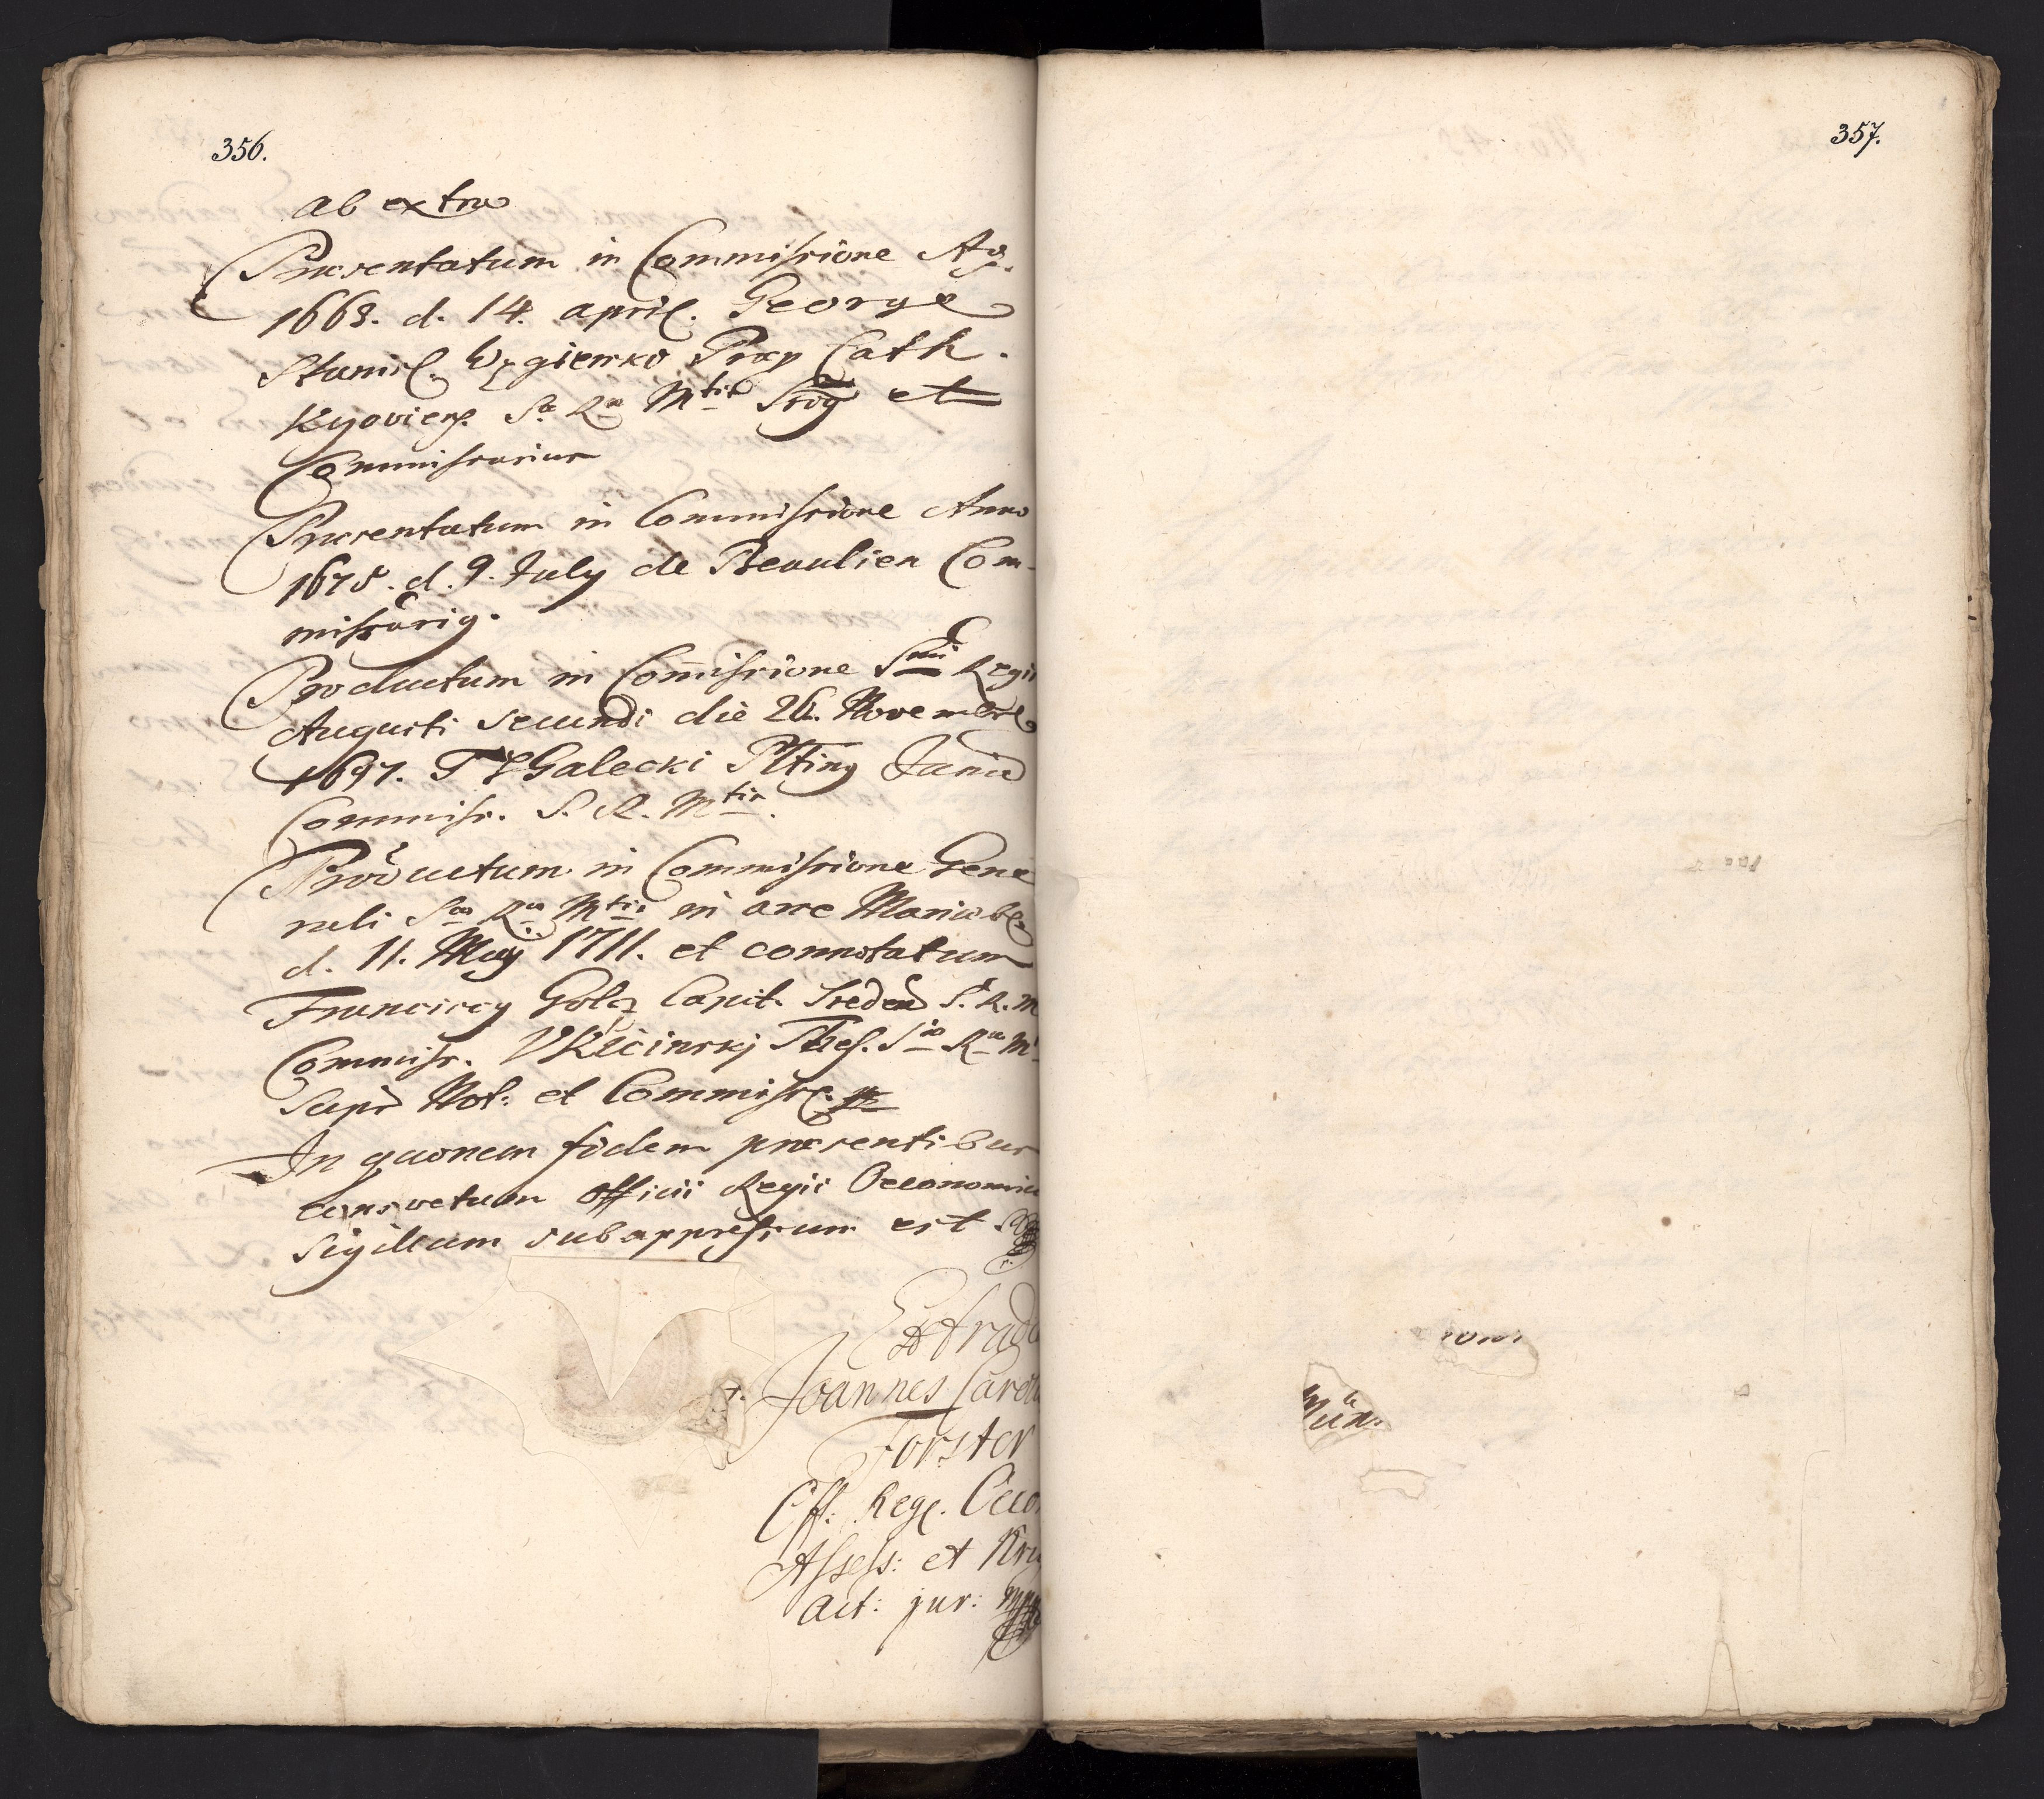 356.
ab extra
Præsentatum in Commissione Ao.
1663. d. 14. april. George
Stanisl. Węgierko Præp Cath.
Kyoviens. Sæ Ræ Mtis Srög et
Commissarius
Præsentatum in Commissione Anno
1675. d. 9. July de Beaulieu Com-
missarig.
Productum in Com̄issione Smi Regis
Augusti secundi die 26. Novembr.
1697. F Z Galecki Jania
Commiss. S. R. Mtis.
Productum in Commissione Gene
rali Sæ Ræ Mtis in arce Mariæb.
d. 11. May 1711. et connotatum
Franciscq Goltz Capit. Sreden S. R. M
Commiss. VKĉcinskj Thes. Sæ Ræ M
Supr Not: et Commiss.
In quorum fidem præsentibus
consvetum officii Regii Oeconomici
Sigillum subappressum est
Extrad
Joannes Carol
Forster
Off: Reg. Oeco
Assess: et
Act: jur: mpp
357.